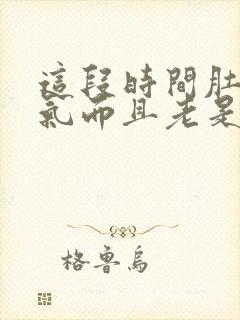 這段時間肚
氣而且老是
格魯烏